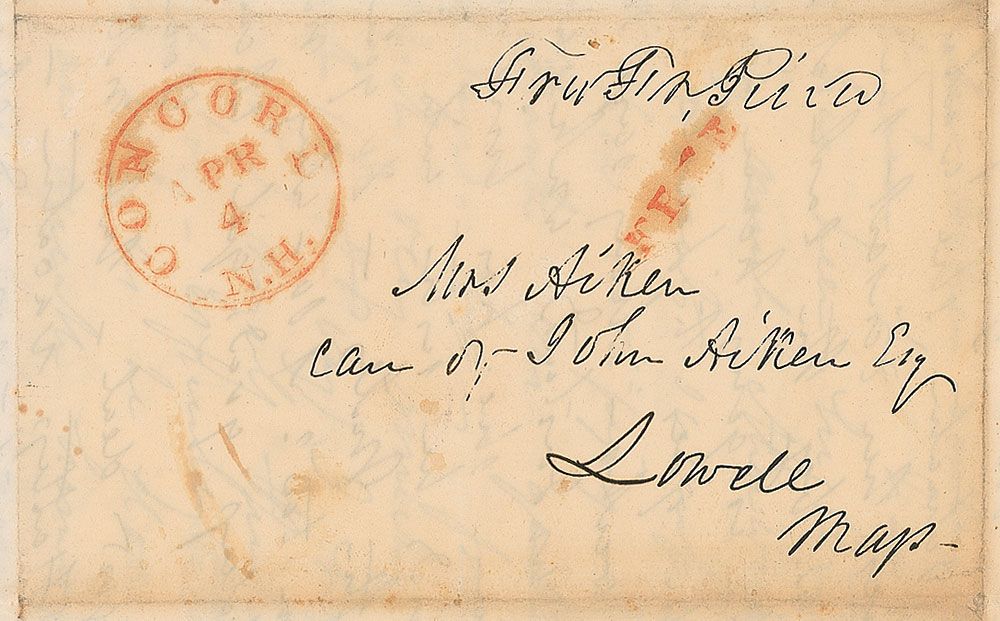 CONCORD
APR
4
N.H.
Free Fr, Pierce
FREE
Mrs Aiken
care of John Aiken Esq
Lowell
Mass-